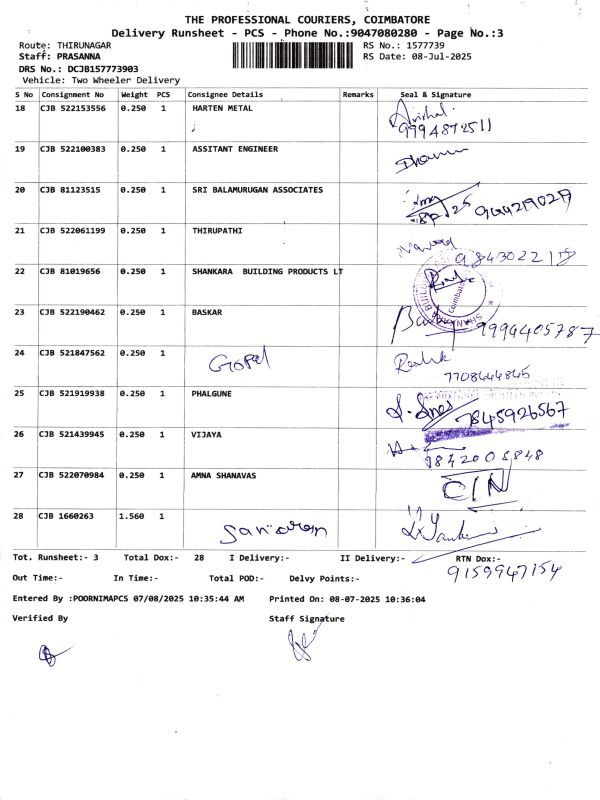 THE PROFESSIONAL COURIERS, COIMBATORE
Delivery Runsheet - PCS - Phone No.:9047080280 - Page No.:3
Route: THIRUNAGAR RS No.: 1577739
Staff: PRASANNA RS Date: 08-Jul-2025
DRS No.: DCJB157773903
Vehicle: Two Wheeler Delivery
S No Consignment No Weight PCS Consignee Details Remarks Seal & Signature
18 CJB 522153556 0.250 1 HARTEN METAL
9994872511
19 CJB 522100383 0.250 1 ASSITANT ENGINEER
20 CJB 81123515 0.250 1 SRI BALAMURUGAN ASSOCIATES
21 CJB 522061199 0.250 1 THIRUPATHI
22 CJB 81019656 0.250 1 SHANKARA BUILDING PRODUCTS LT
23 CJB 522190462 0.250 1 BASKAR
9994405787
24 CJB 521847562 0.250 1 Gopal
7708644845
25 CJB 521919938 0.250 1 PHALGUNE
7845926567
26 CJB 521439945 0.250 1 VIJAYA
9842005848
27 CJB 522070984 0.250 1 AMNA SHANAVAS
28 CJB 1660263 1.560 1
Tot. Runsheet:- 3 Total Dox:- 28 I Delivery:- II Delivery:- RTN Dox:-
9159947154
Out Time:- In Time:- Total POD:- Delvy Points:-
Entered By :POORNIMAPCS 07/08/2025 10:35:44 AM Printed On: 08-07-2025 10:36:04
Verified By Staff Signature